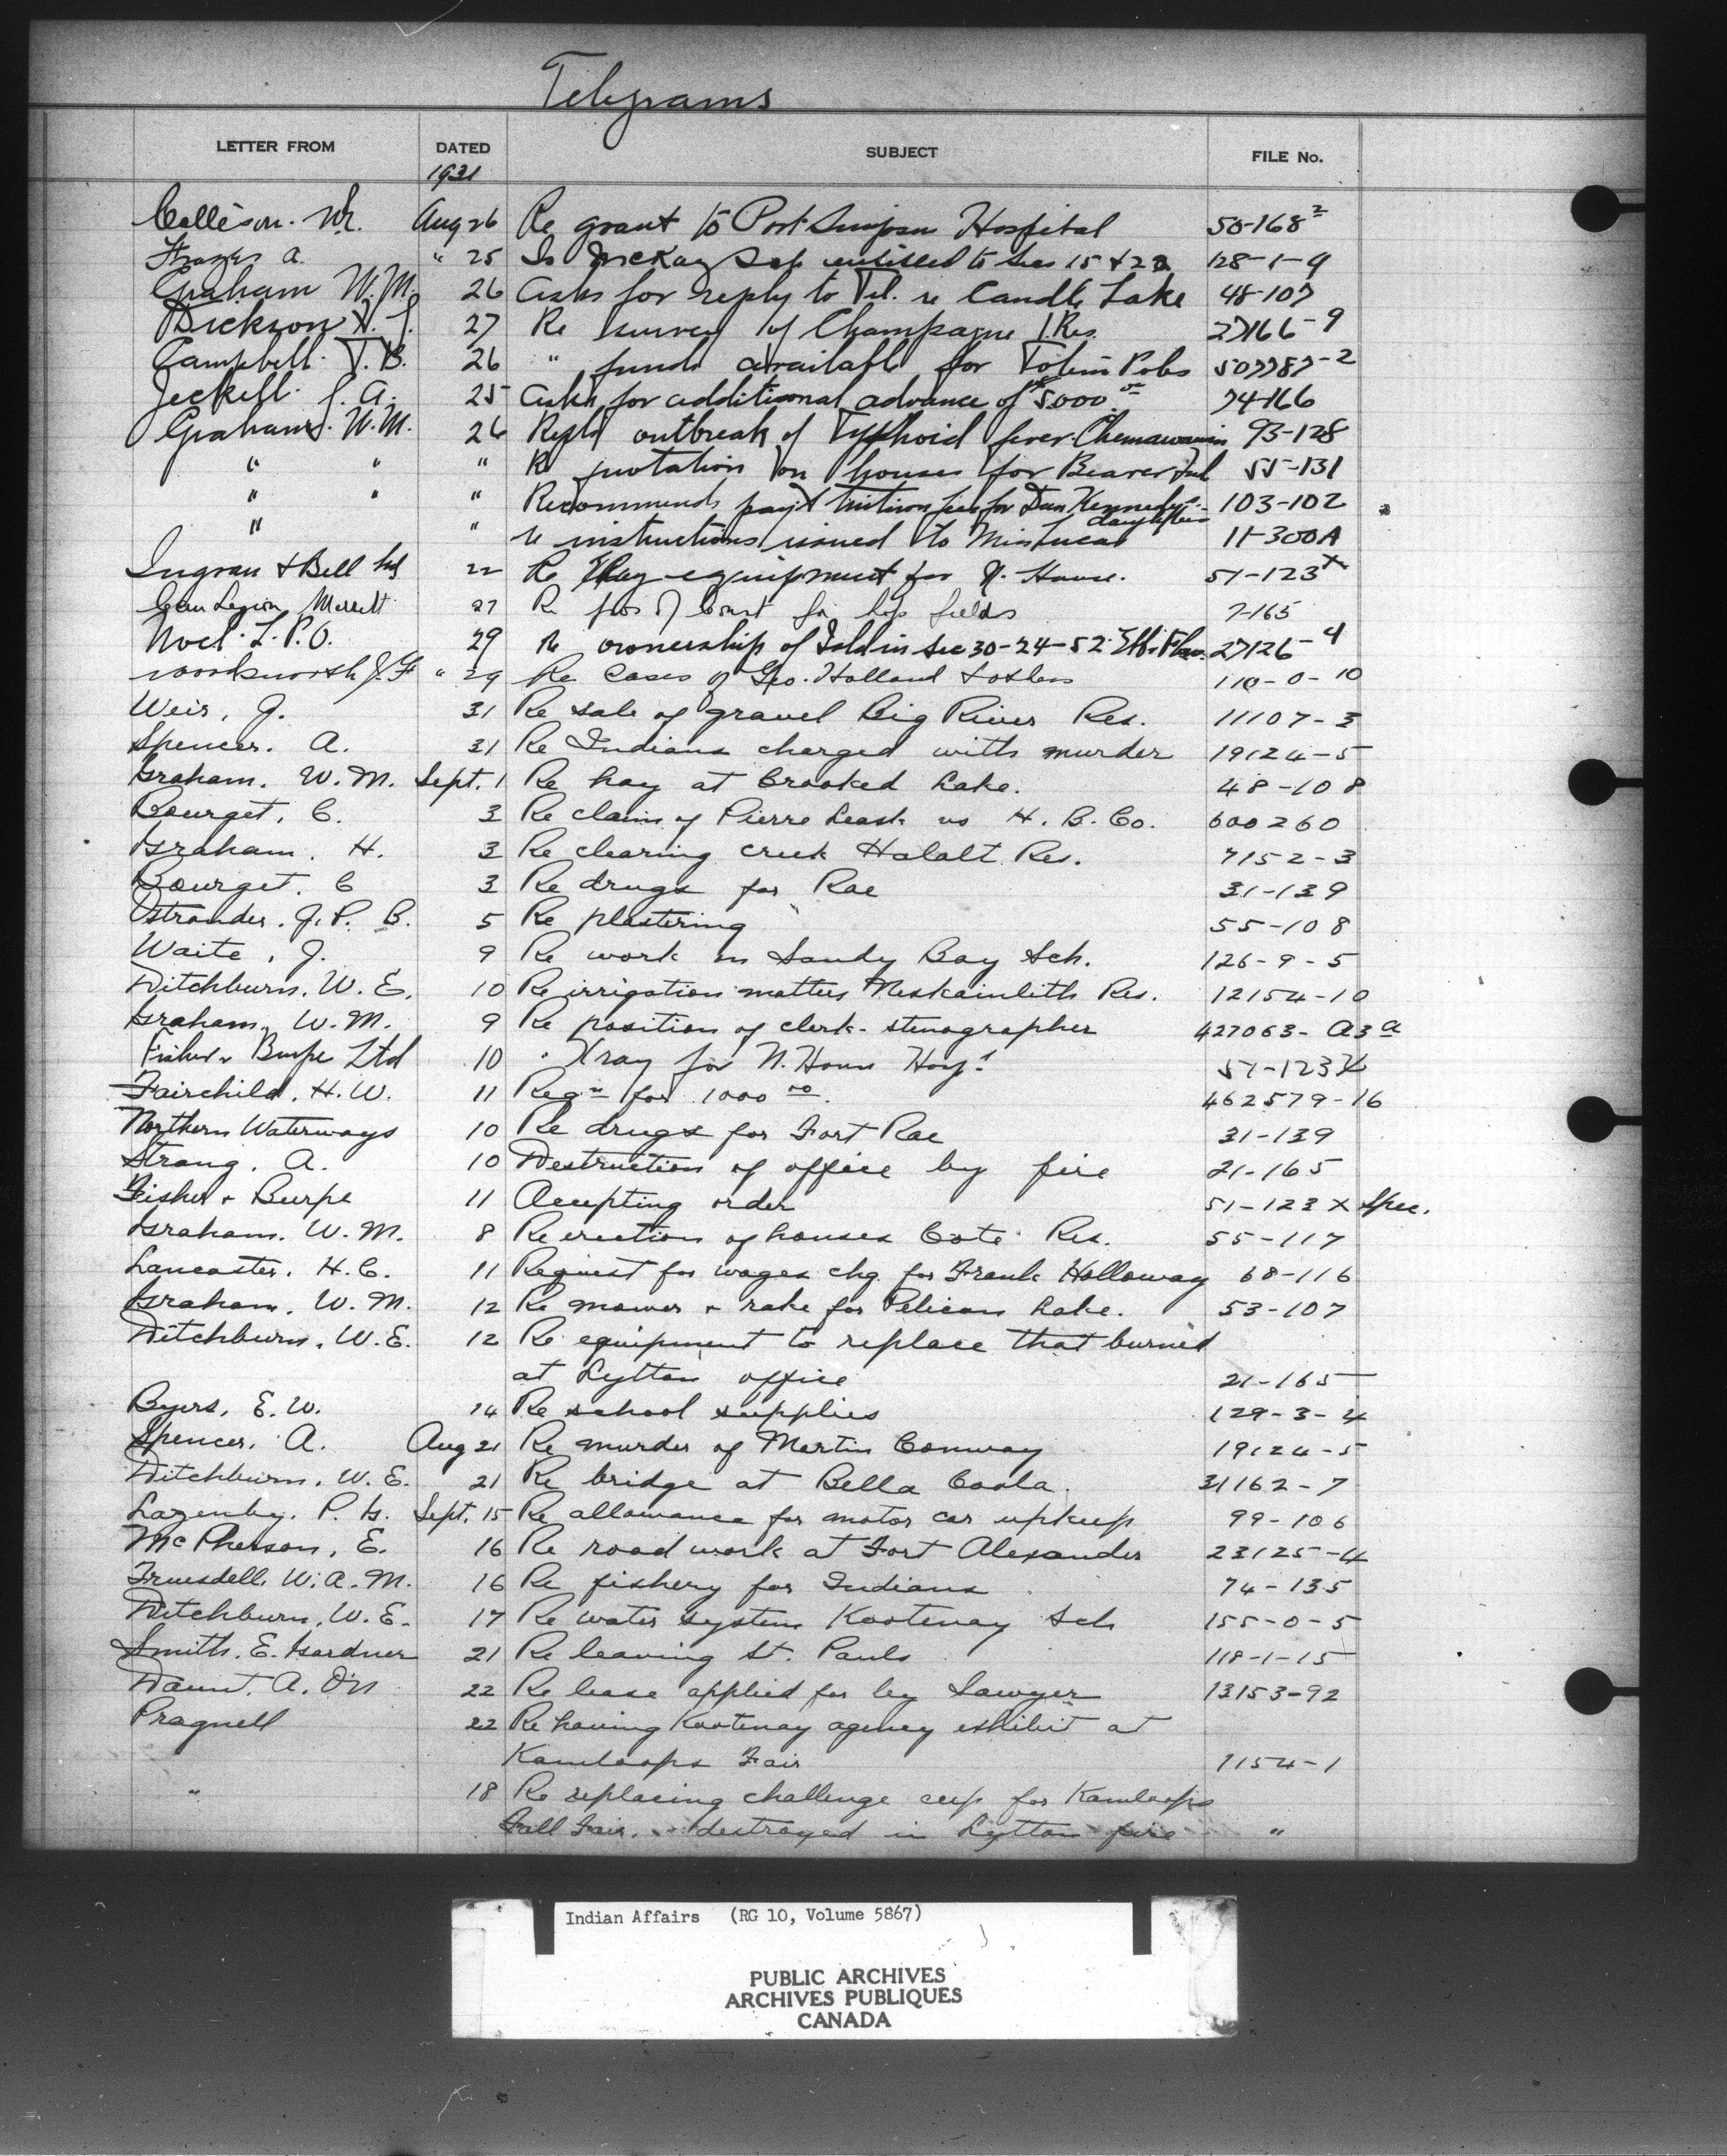 Telegrams
LETTER FROM DATED SUBJECT FILE No.
1931
Collison. W. Aug 26 Re grant to Port Simpson Hospital 50-168²
A. " 25 Is McKay entitled to Sec 15 & 22 128-1-9
Graham W.M. 26 Asks for reply to Tel. re Candle Lake 48-107
Dickson 27 Re survey of Champagne I. Res. 27166-9
Campbell. T. B. 26 " funds available for Totem Poles 507787-2
Jeckell. G. A. 25 Asks for additional advance of $5000.00 74-166
Graham. W.M. 26 Repts outbreak of Typhoid fever. Chemawawin 93-128
" " " Re quotation on houses for Beaver 55-131
" " " Recommends payt tuition fees for Dan Kennedy's daughters 103-102
" " re instructions issued to Miss Lucas 11-300A
Ingram & Bell Ltd 22 Re XRay equipment for N. House. 51-123X
Can Legion, Merritt 27 Re of for hop fields 7-165
Noel. L.P.O. 29 Re ownership of Isld in Sec 30-24-52 27126-4
Woodsworth J. F " 29 Re Cases of Geo. Holland & others 110-0-10
Weir, J. 31 Re sale of gravel Big River Res. 11107-3
Spencer. A. 31 Re Indians charged with murder 19124-5
Graham. W.M. Sept. 1 Re hay at Crooked Lake. 48-108
Bourget, C. 3 Re claim of Pierre Leask vs H. B. Co. 600260
Graham. H. 3 Re clearing creek Halalt Res. 7152-3
Bourget. C 3 Re drugs for Rae 31-139
Ostrander. J. P. B. 5 Re plastering 55-108
Waite, J. 9 Re work on Sandy Bay Sch. 126-9-5
Ditchburn. W. E. 10 Re irrigation matters Neskainlith Res. 12154-10
Graham. W.M. 9 Re position of clerk-stenographer 427063-A3a
Fisher & Burpe Ltd 10 " Xray for N. House Hosp. 51-123X
Fairchild. H.W. 11 Reqn for 1000 00. 462579-16
Northern Waterways 10 Re drugs for Fort Rae 31-139
Strang. A. 10 Destruction of office by fire 21-165
Fisher & Burpe 11 Accepting order 51-123 X Spec.
Graham. W. M. 8 Re erection of houses Cote Res. 55-117
Lancaster. H.C. 11 Request for wages chq. for Frank Holloway 68-116
Graham. W. M. 12 Re mower & rake for Pelican Lake. 53-107
Ditchburn. W.E. 12 Re equipment to replace that burned
at Lytton office 21-165
Byers, E. W. 14 Re school supplies 129-3-4
Spencer, A. Aug 21 Re murder of Martin Conway 19124-5
Ditchburn. W. E. 21 Re bridge at Bella Coola. 31162-7
Lazenby. P. G. Sept. 15 Re allowance for motor car upkeep 99-106
McPherson, E. 16 Re road work at Fort Alexander 23125-4
Truesdell. W.A.M. 16 Re fishery for Indians 74-135
Ditchburn. W.E. 17 Re water system Kootenay Sch 155-0-5
Smith. E. Gardner 21 Re leaving St. Pauls 118-1-15
Daunt. A. O'N 22 Re lease applied for by Sawyer 13153-92
Pragnell 22 Re having Kootenay agency exhibit at
Kamloops Fair 7154-1
" 18 Re replacing challenge cup for Kamloops
Fall Fair. destroyed in Lytton fire "
Indian Affairs (RG 10, Volume 5867)
PUBLIC ARCHIVES
ARCHIVES PUBLIQUES
CANADA